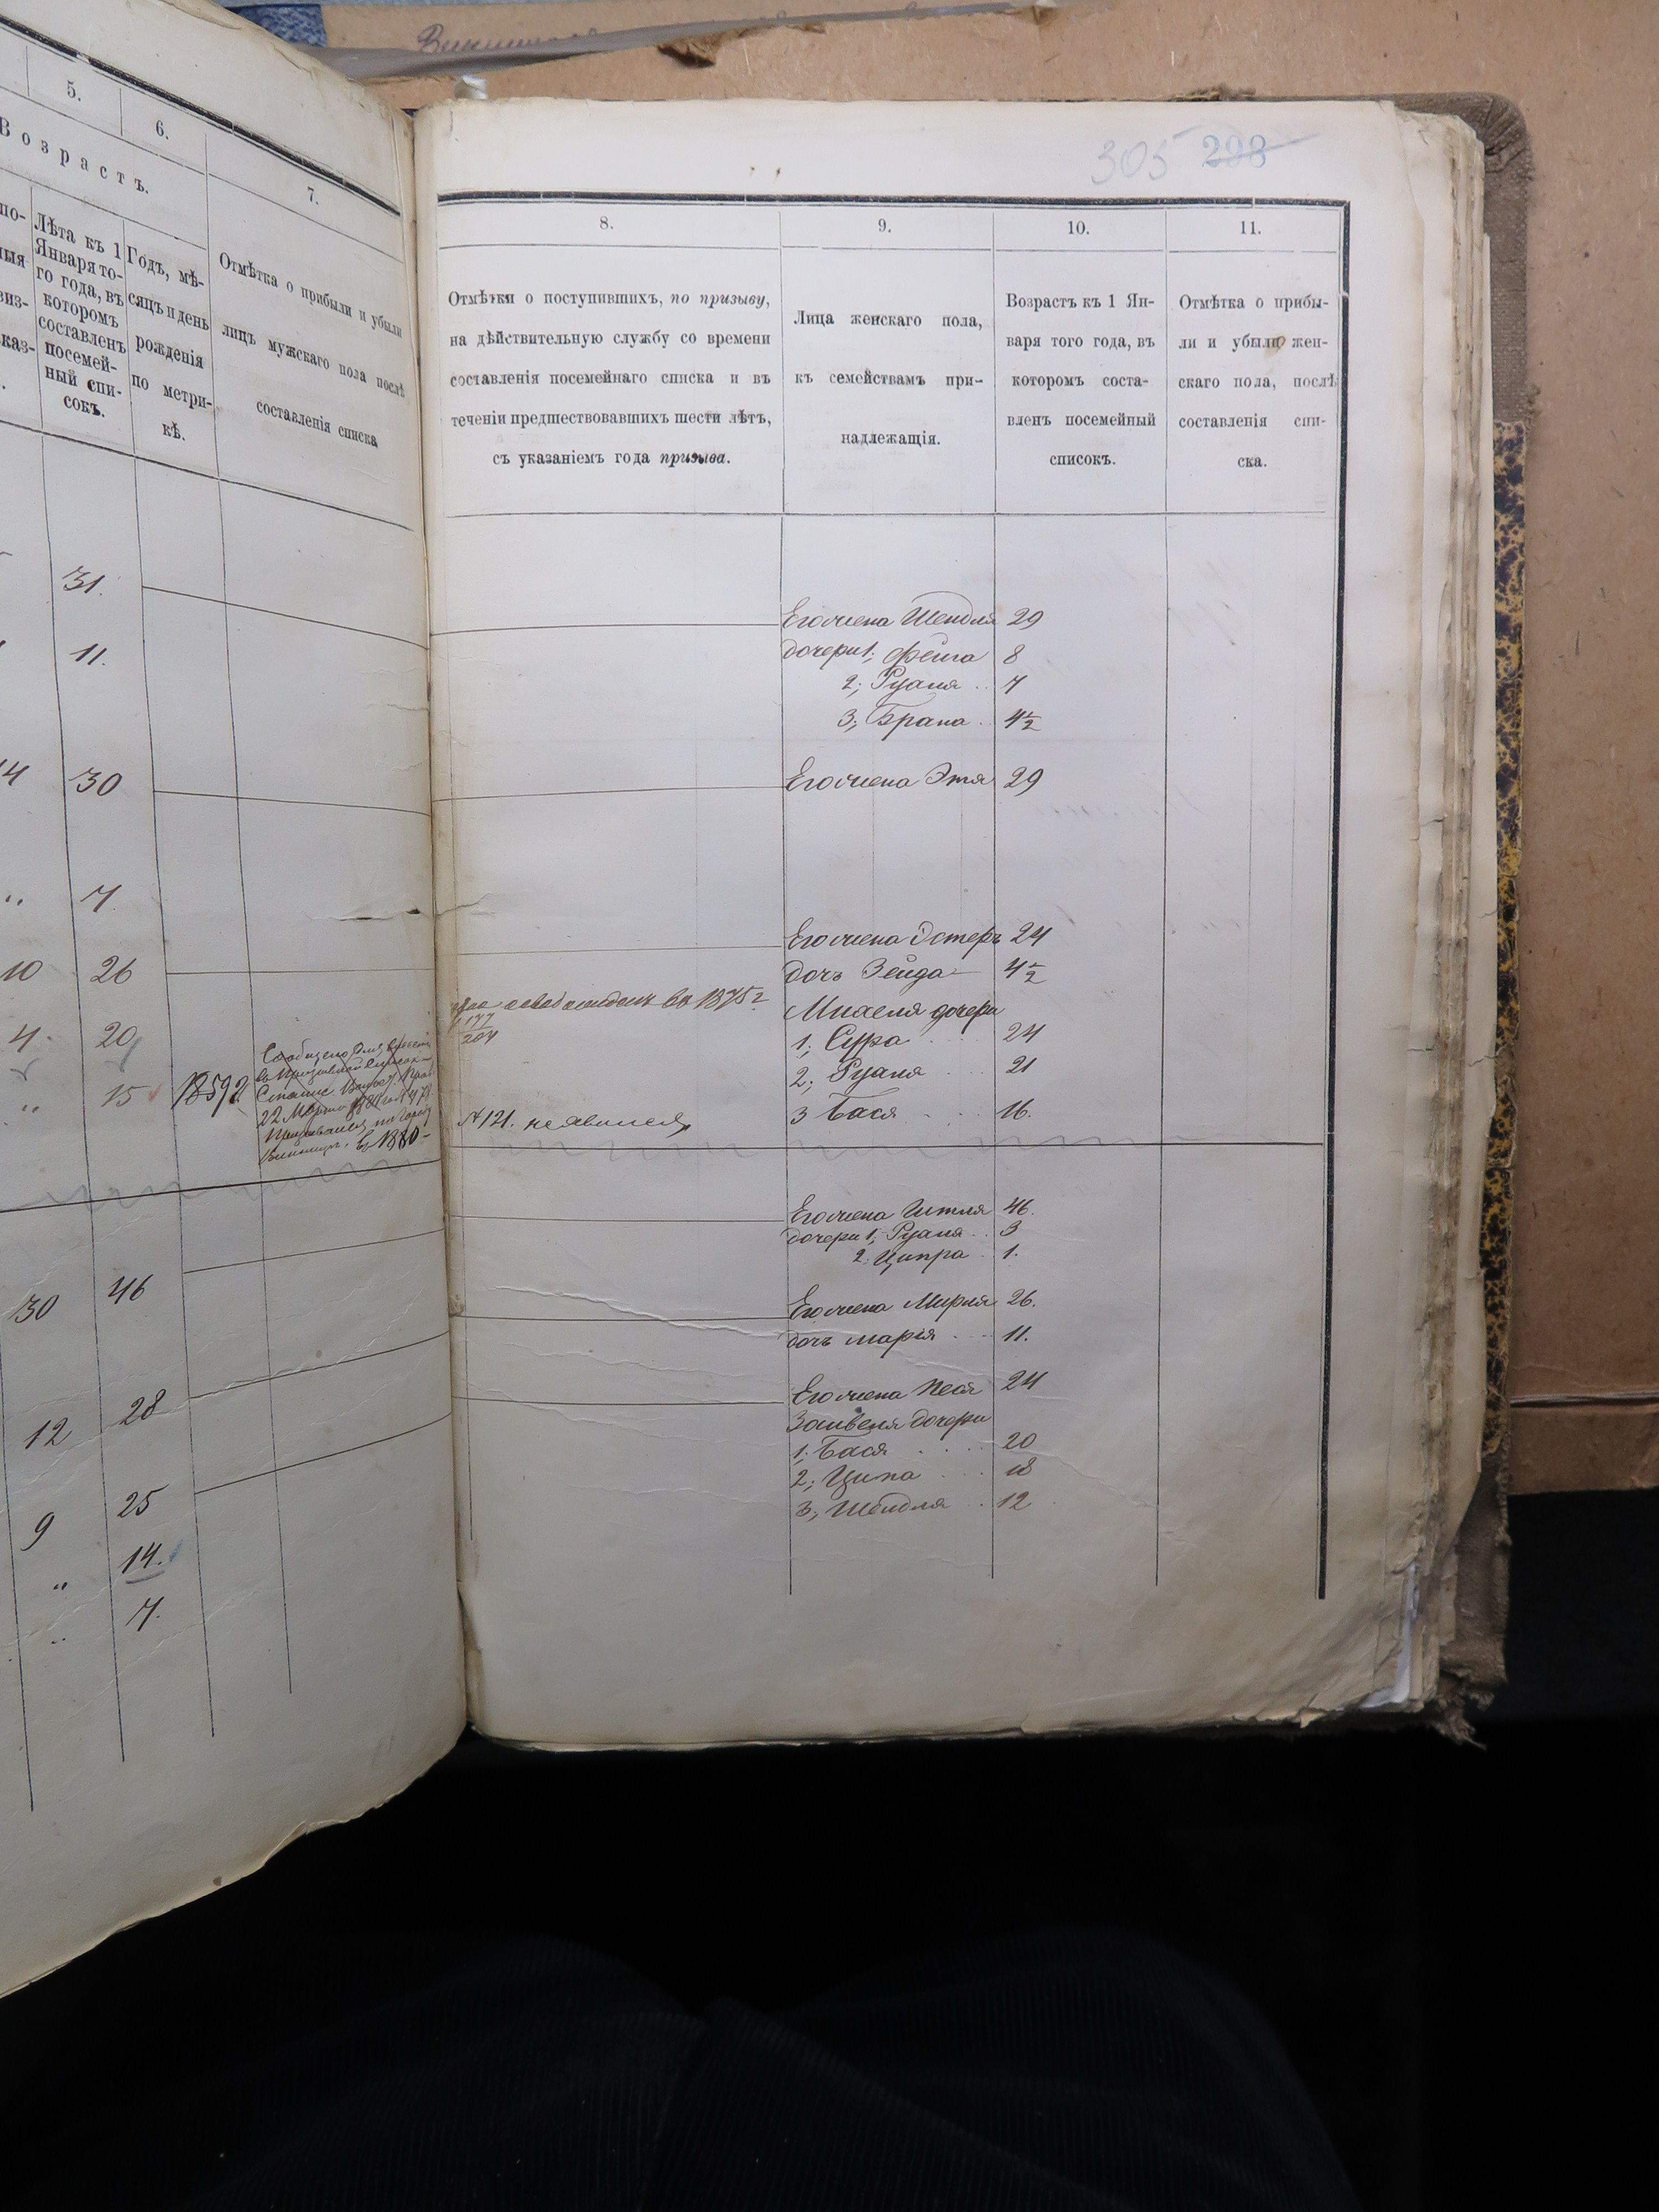 305 298
5.
6.
Возрастъ.
7.
Лѣта къ 1
Января то-
го года, въ
которомъ
составленъ
посемей-
ный спи-
сокъ.
Годъ, мѣ-
сяцъ и день
рожденія
по метри-
кѣ.
Отмѣтка о прибыли и убыли
лицъ мужскаго пола послѣ
составленія списка
31.
11.
30
7
10 26
4. 20
" 15 1859 г.
22 Марта
въ 1880
30 46
12 28
9 25
" 14.
" 7.
8.
9.
10.
11.
Отмѣтки о поступившихъ, по призыву,
на дѣйствительную службу со времени
составленія посемейнаго списка и въ
теченіи предшествовавшихъ шести лѣтъ,
съ указаніемъ года призыва.
Лица женскаго пола,
къ семействамъ при-
надлежащія.
Возрастъ къ 1 Ян-
варя того года, въ
которомъ соста-
вленъ посемейный
списокъ.
Отмѣтка о прибы-
ли и убыли жен-
скаго пола, послѣ
составленія спи-
ска.
Его жена Шендля 29
дочери 1; Фейга 8
2; Рухля 7
3; Брана 4½
Его жена Этя 29
Его жена Эстеръ 24
дочь Зейда 4½
въ 1875 г.
177
204
Михеля дочери
1; Сура 24
2; Рухля 21
№ 121. неявился
3 Бася 16.
Его жена Итля 46.
дочери 1; Рухля 3
2. Ципра 1.
Его жена Мирля 26.
дочь Марія 11.
Его жена Песя 24
дочери
1; Бася 20
2; Ципа 18
3; Шендля 12